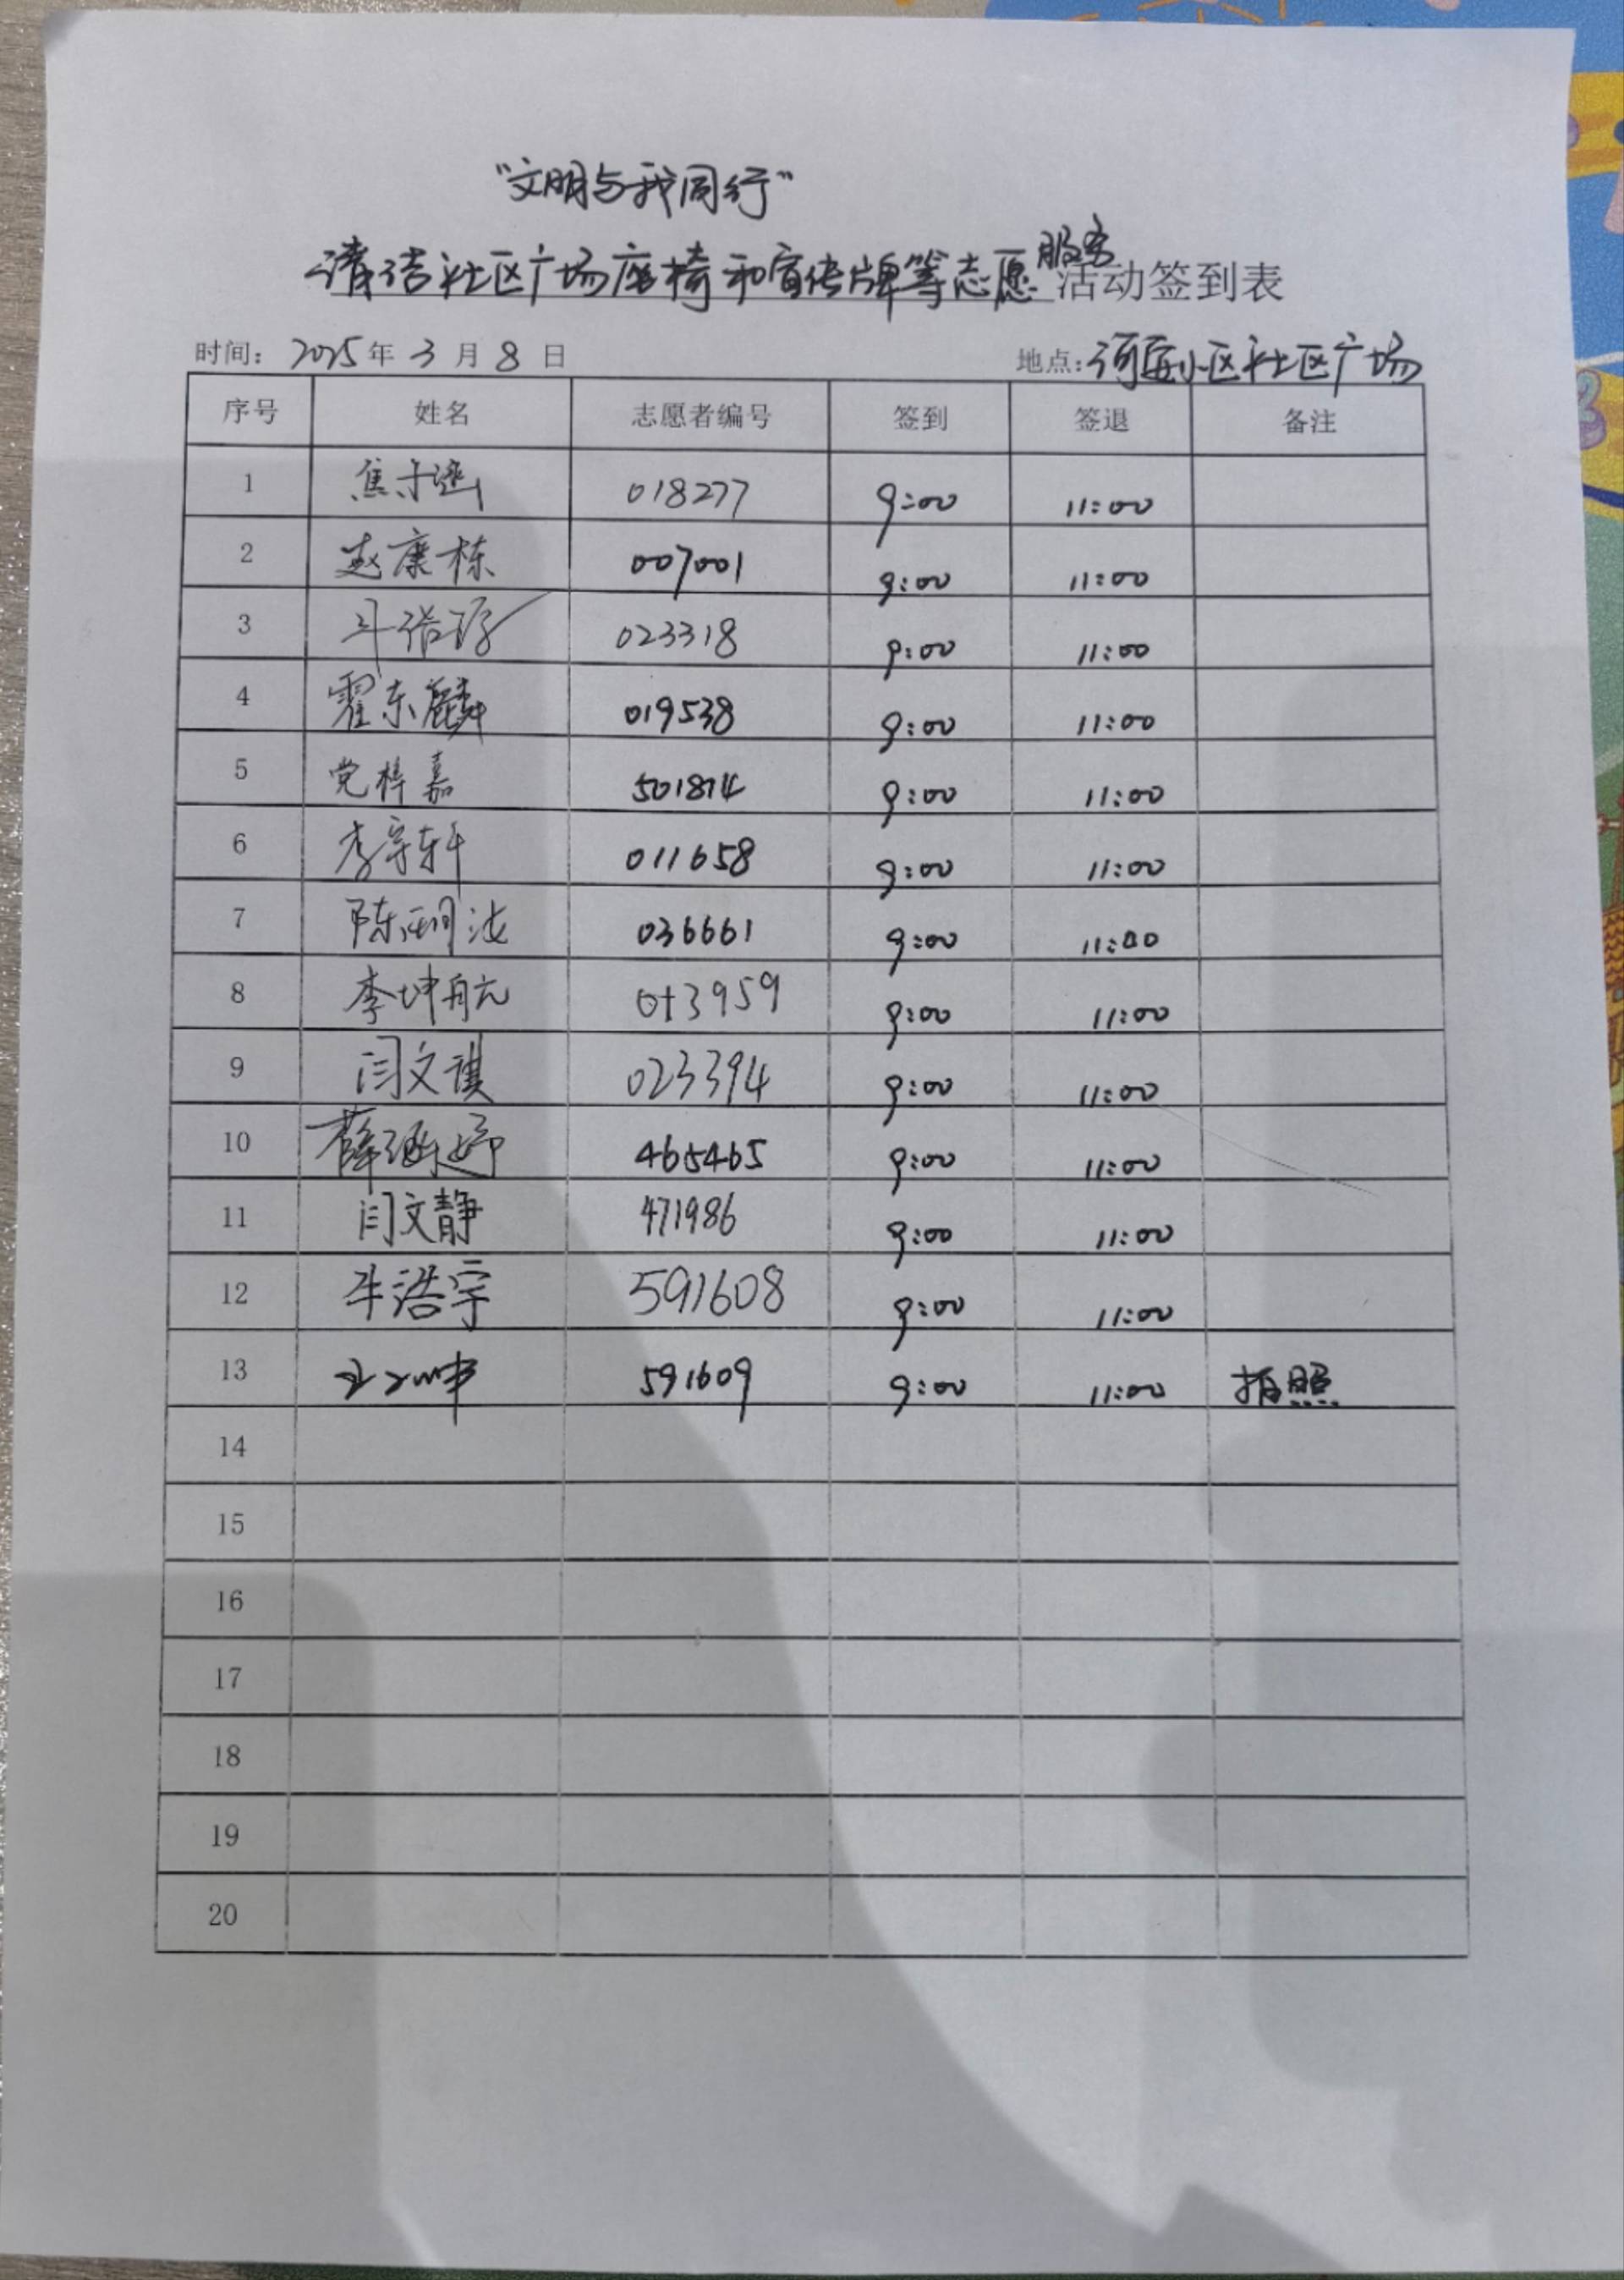 “文明与我同行”
清洁社区广场座椅和宣传牌等志愿服务活动签到表
时间：2025年3月8日 地点：河蓝小区社区广场
序号 姓名 志愿者编号 签到 签退 备注
1 焦子涵 018277 9:00 11:00
2 赵康栋 007001 9:00 11:00
3 023318 9:00 11:00
4 霍东麟 019538 9:00 11:00
5 党梓嘉 501874 9:00 11:00
6 李宗轩 011658 9:00 11:00
7 陈 036661 9:00 11:00
8 李坤航 013959 9:00 11:00
9 闫文琪 023394 9:00 11:00
10 薛涵 465465 9:00 11:00
11 闫文静 471986 9:00 11:00
12 牛浩宇 591608 9:00 11:00
13 591609 9:00 11:00 拍照
14
15
16
17
18
19
20